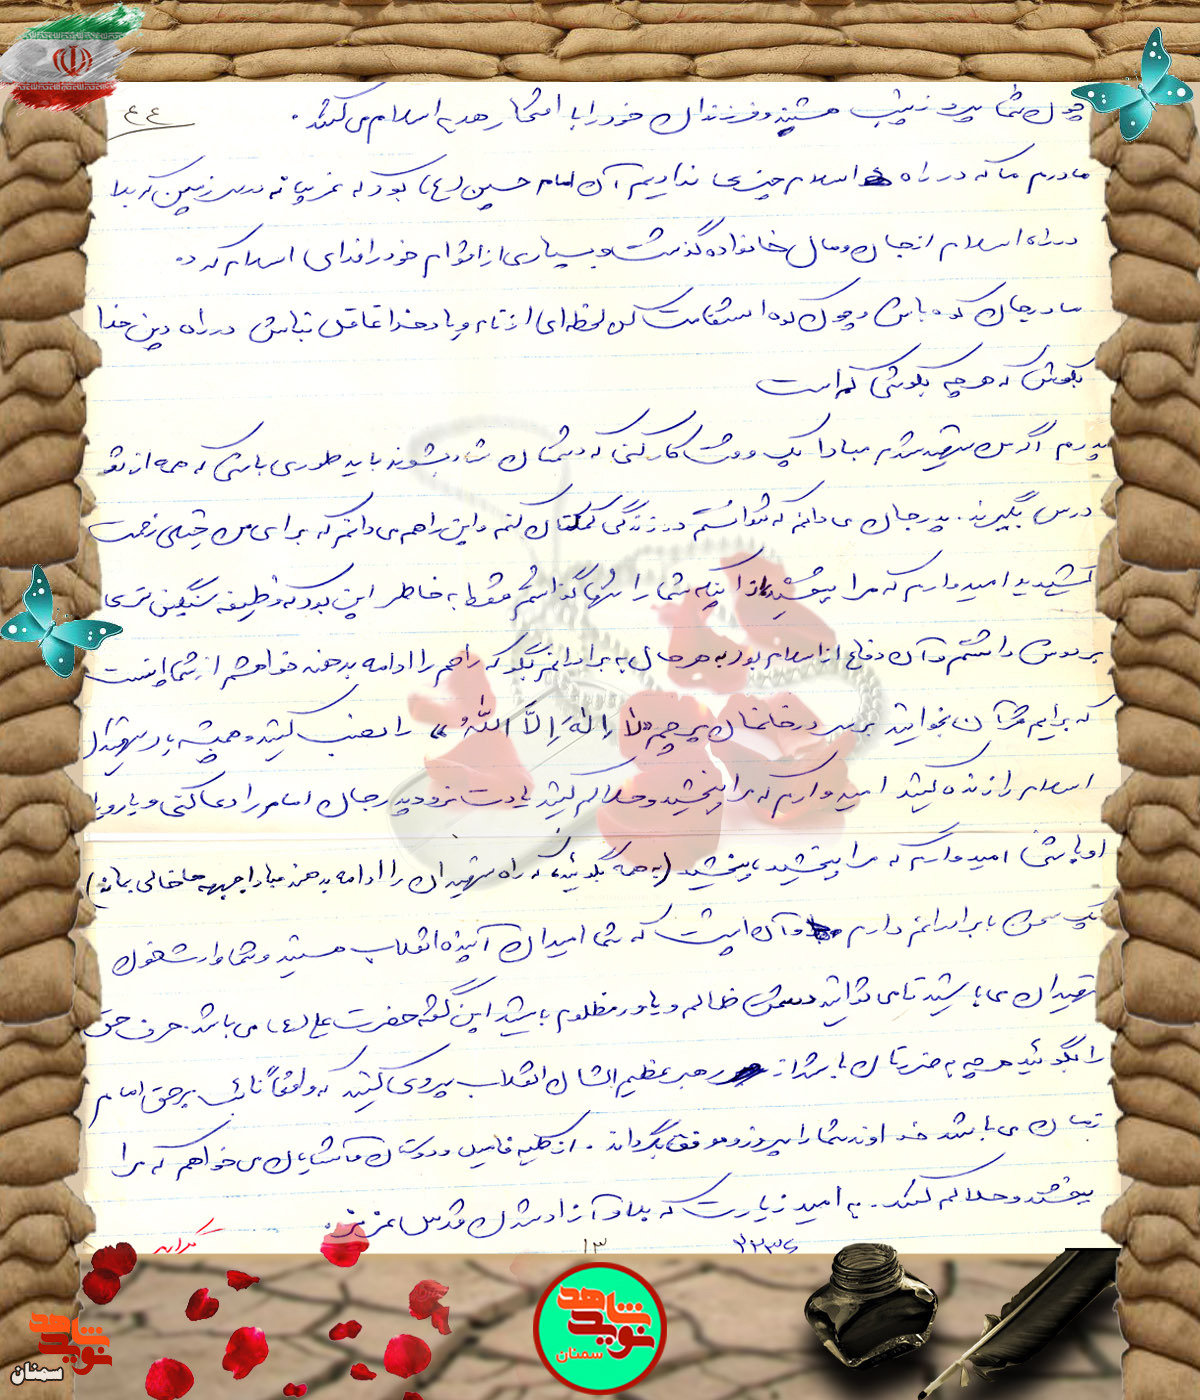 ٤٤
چون شما پیرو زینب هستید و فرزندان خود را با افتخار هدیه اسلام می‌کنید.
مادرم ما که در راه اسلام چیزی نداریم آن امام حسین (ع) بود که غریبانه در سرزمین کربلا
در راه اسلام از جان و مال خانواده گذشت و بسیاری از اقوام خود را فدای اسلام کرد.
مادر جان کوه باش و چون کوه استقامت کن لحظه‌ای از نماز و یاد خدا غافل نباش در راه دین خدا
بکوش که هر چه بکوشی کم است
پدرم اگر من شهید شدم مبادا یک وقت کار کنی که دشمنان شاد بشوند باید طوری باشی که همه از تو
درس بگیرند. پدر جان می دانم که نتوانستم در زندگی کمکتان کنم و این را هم می دانم که برای من خیلی زحمت
کشیدید امیدوارم که مرا ببخشید از اینکه شما را تنها گذاشتم فقط به خاطر این بود که وظیفه سنگین تری
بر دوش داشتم و آن دفاع از اسلام بود به هر حال به برادرانم بگو که راهم را ادامه بدهند خواهشم از شما اینست
که برایم قرآن بخوانید بر سر در خانمان پرچم «لا اِلهَ اِلاَّ اللّهُ» را نصب کنید و همیشه یاد شهیدان
اسلام را زنده کنید امیدوارم که مرا ببخشید و حلالم کنید یادت نرود پدر جان امام را دعا کنی و یار و یاور
او باشی امیدوارم که مرا ببخشید، ببخشید (به همه بگوئید که راه شهیدان را ادامه بدهند مبادا جبهه ها خالی بماند)
یک سخن با برادرانم دارم و آن اینست که شما امیدان آینده انقلاب هستید و شما وارث خون
شهیدان می باشید تا می توانید دشمن ظالم و یاور مظلوم باشید این گفته حضرت علی (ع) می باشد. حرف حق
را بگوئید هر چه به ضررتان باشد از رهبر عظیم الشان انقلاب پیروی کنید که واقعاً نائب بر حق امام
زمان می باشد خداوند شما را پیروز و موفق بگرداند. از کلیه فامیل و دوستان و آشنایان می خواهم که مرا
ببخشند و حلالم کنند. به امید زیارت کربلا و آزاد شدن قدس عزیز.
۱۳
نوید شاهد
سمنان
نوید شاهد
سمنان